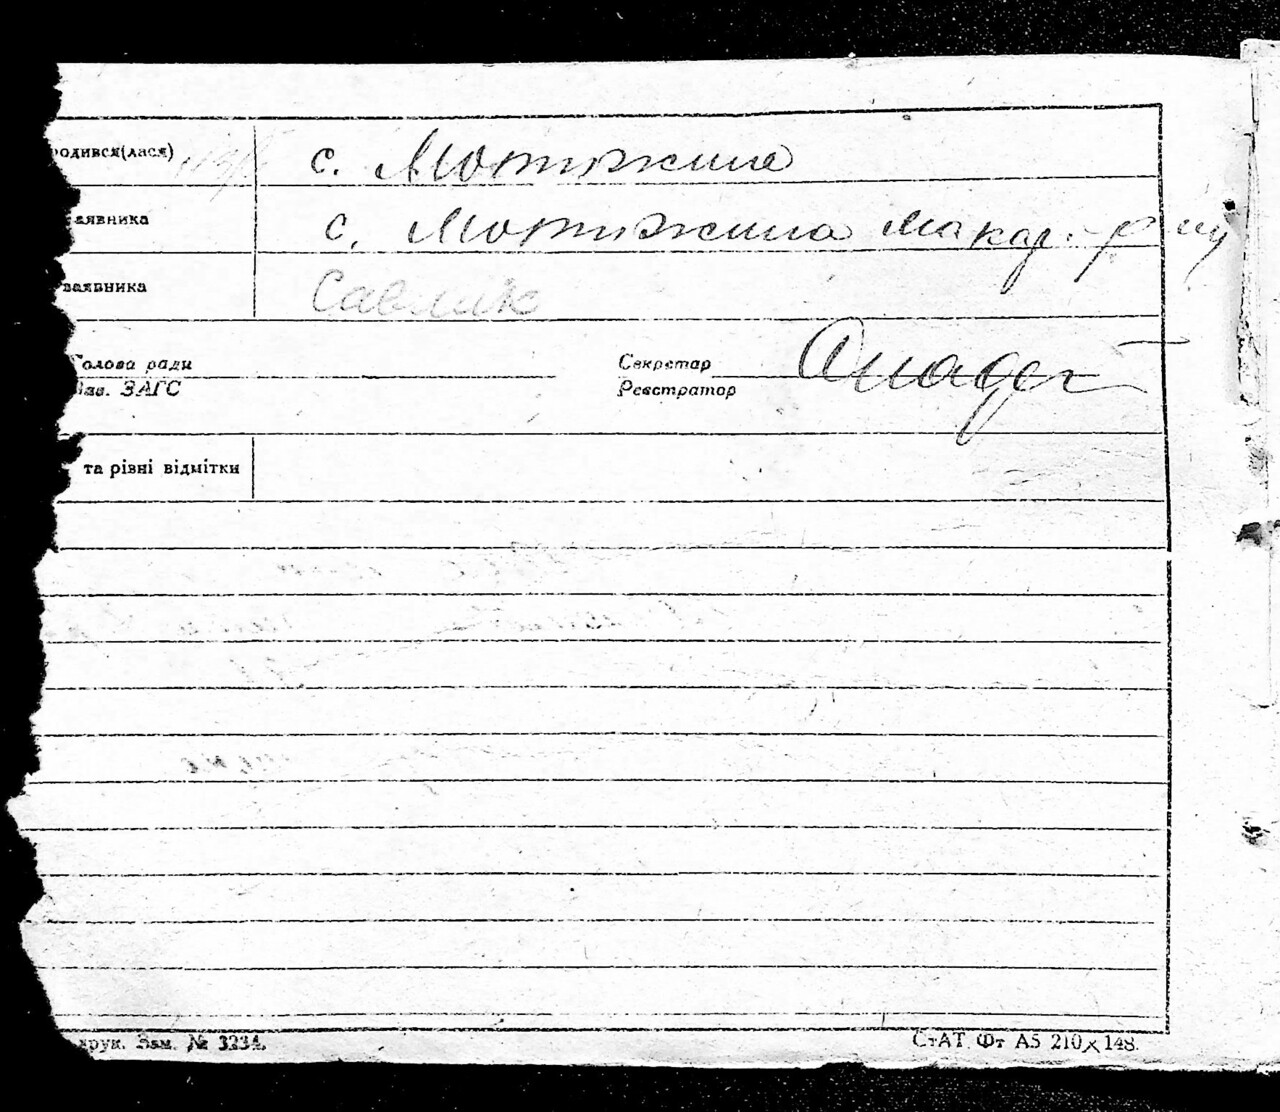 родився(лася) с. Мотижина
заявника с. Мотижино Макар. р-ну
заявника Савлик
Голова ради Секретар
Зав. ЗАГС Реєстратор
та рівні відмітки
друк. Зам. № 3234. СтАТ. Фт А5 210×148.